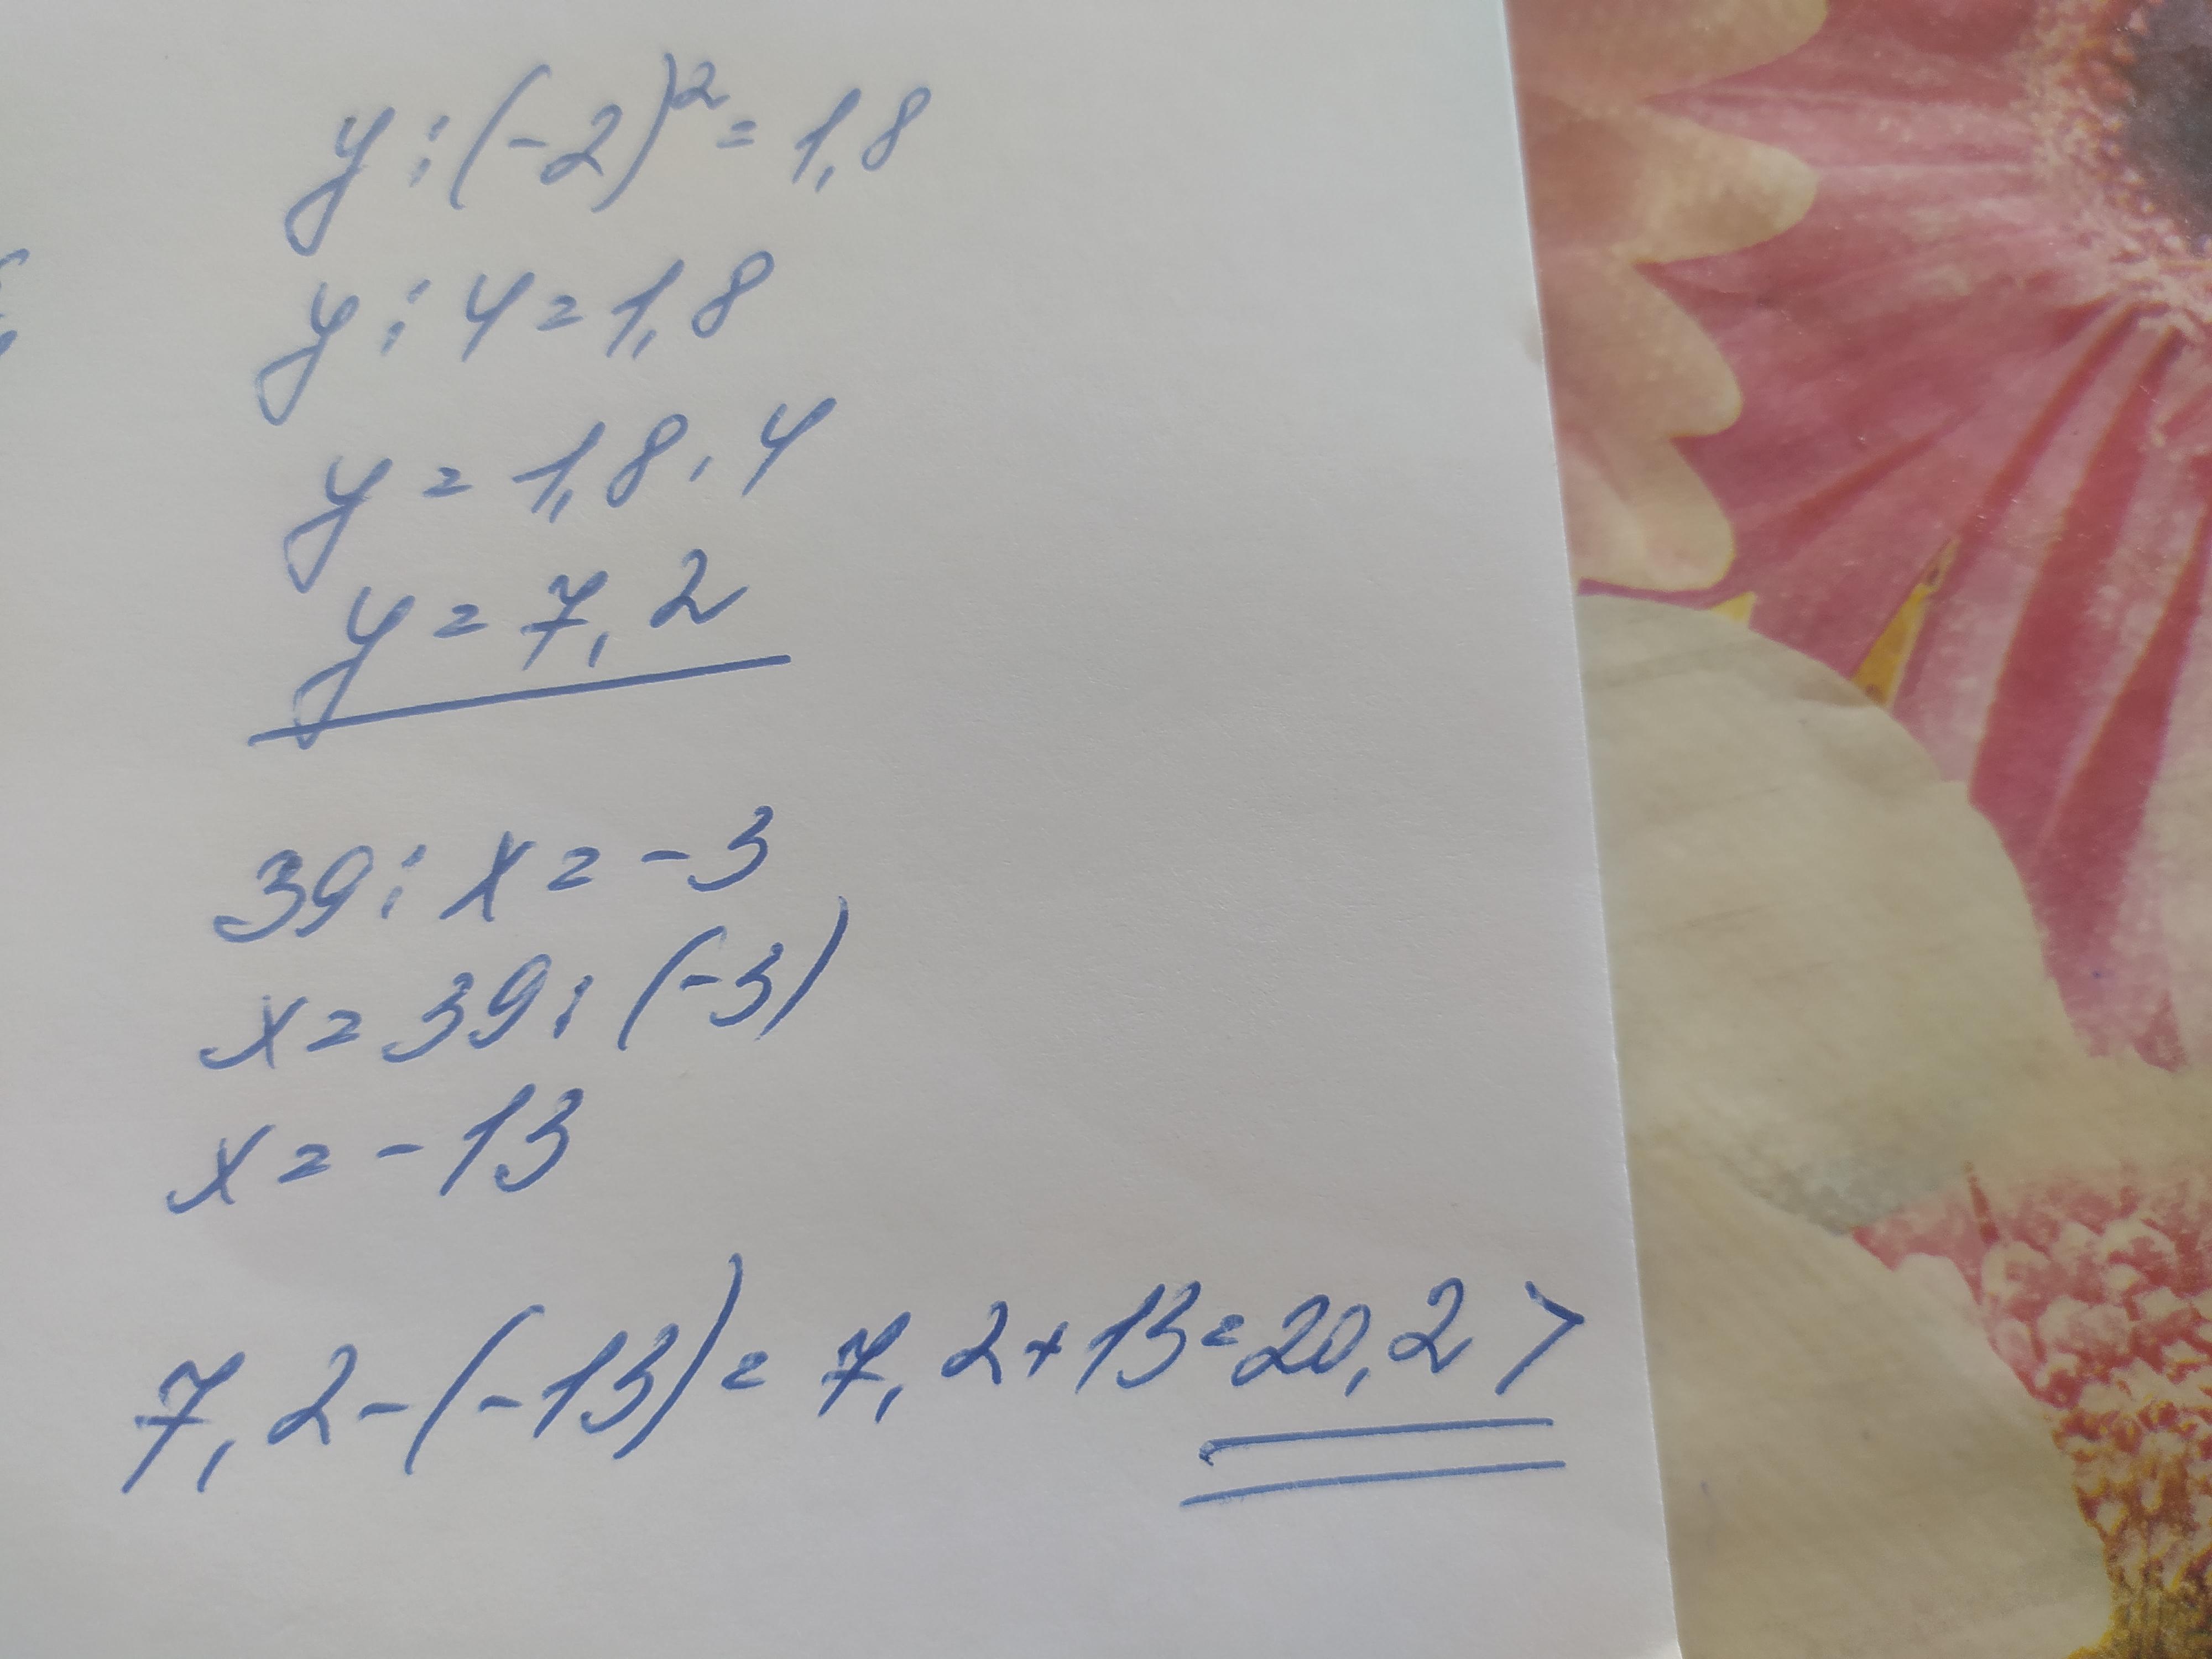 y:(-2)²=1,8
y:4=1,8
y=1,8.4
y=7,2
39:x=-3
x=39:(-3)
x=-13
7,2-(-13)=7,2+13=20,2>